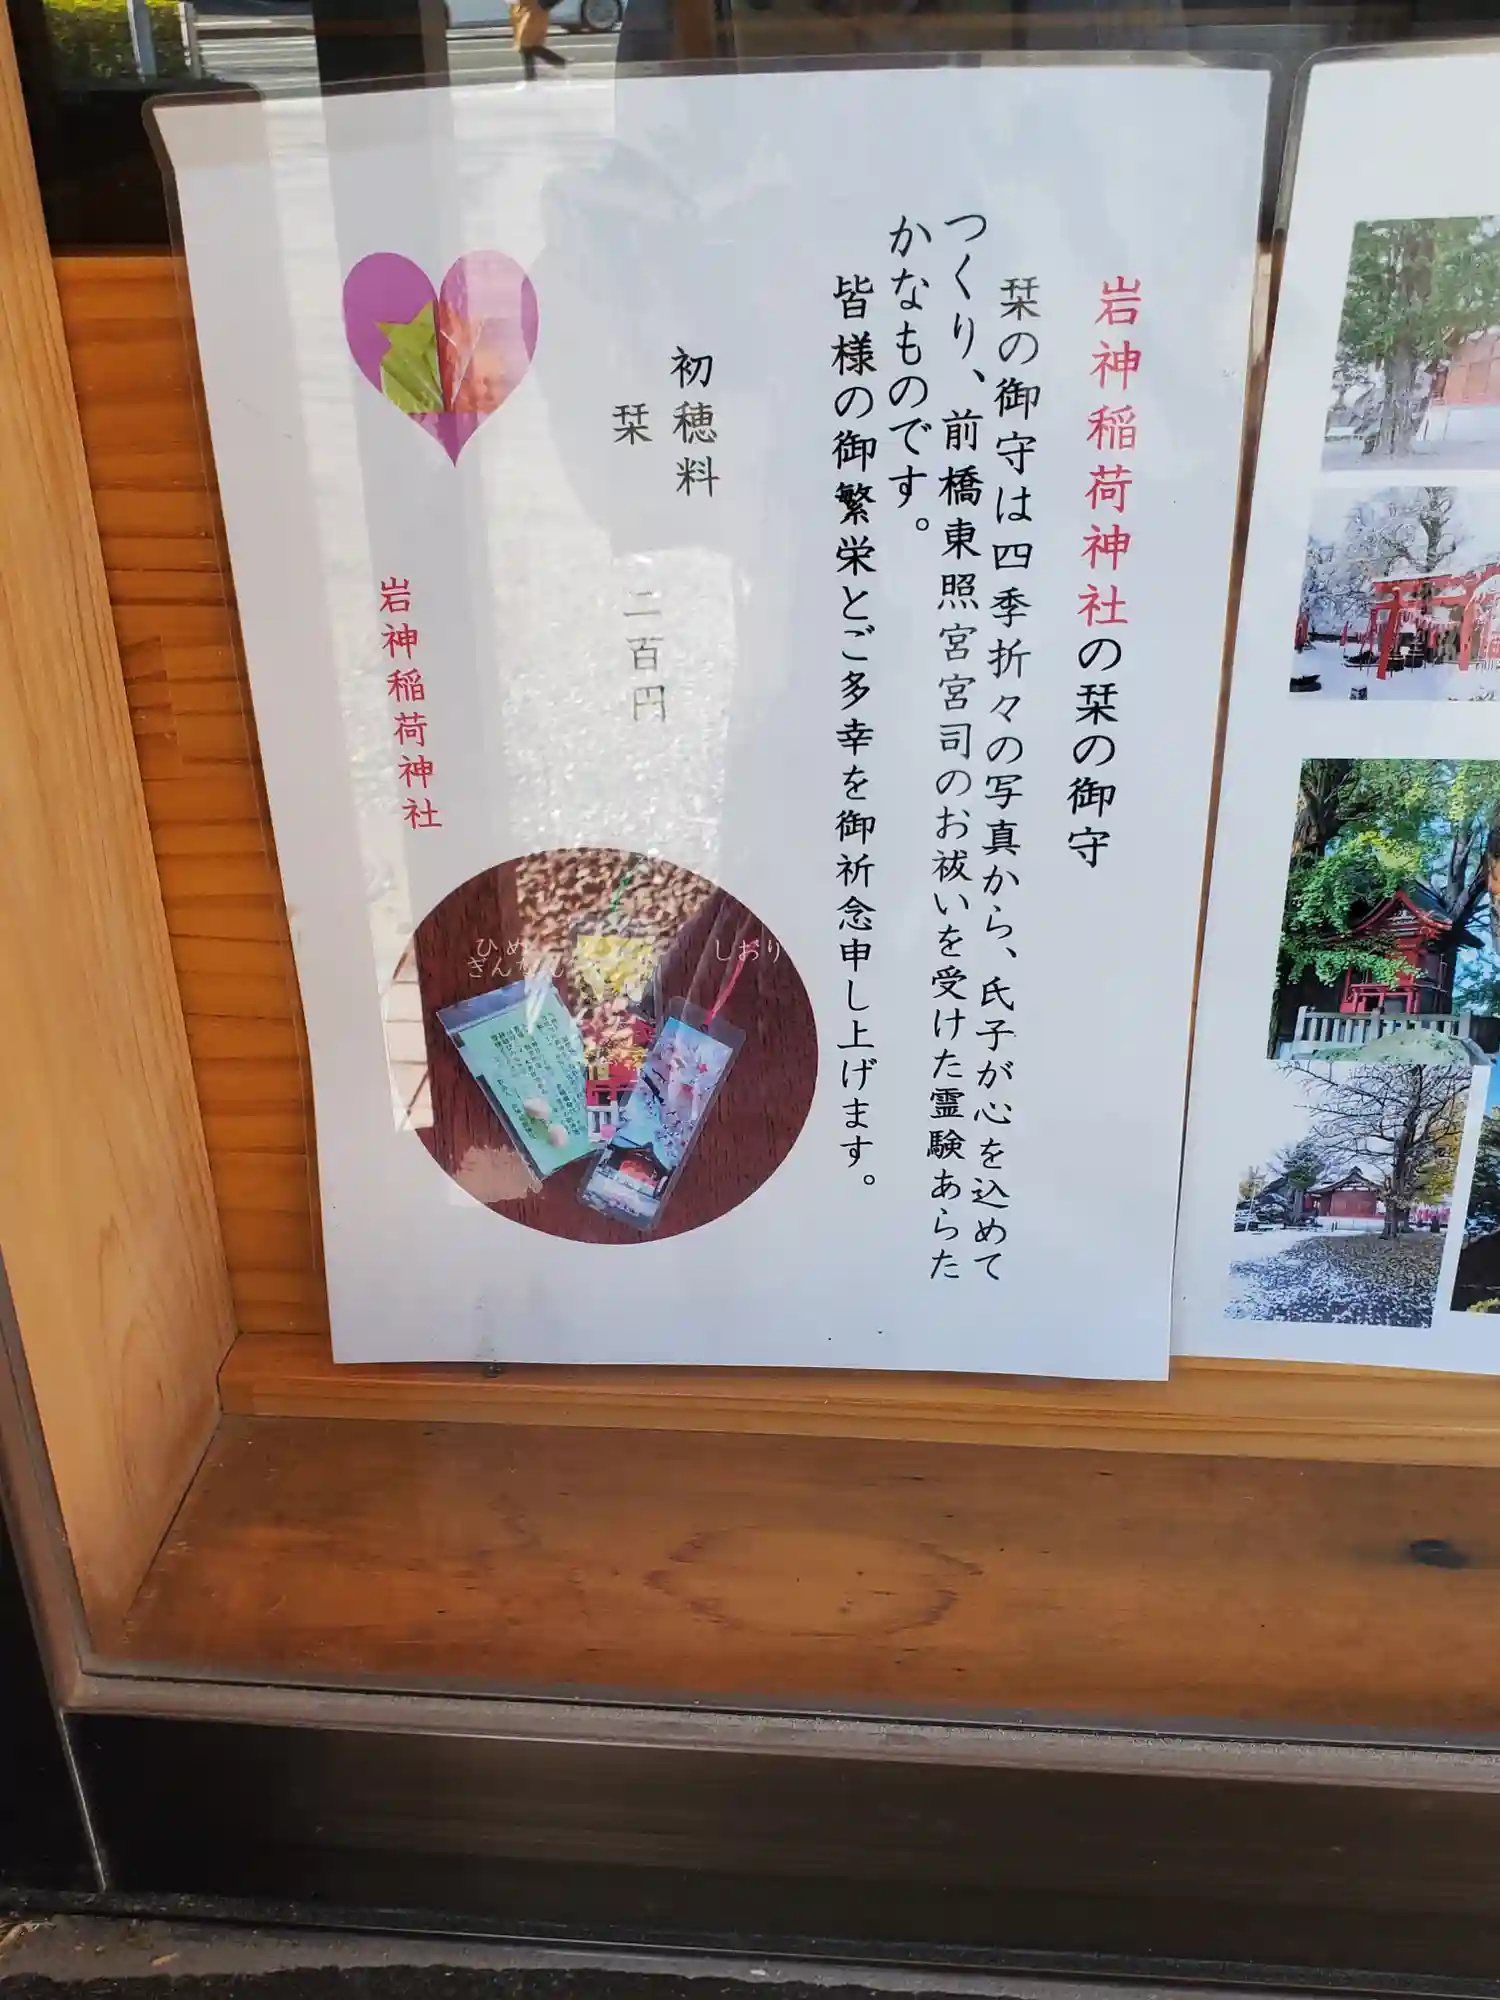 岩神稲荷神社の栞の御守
栞の御守は四季折々の写真から、氏子が心を込めて
つくり、前橋東照宮宮司のお祓いを受けた霊験あらた
かなものです。
皆様の御繁栄とご多幸を御祈念申し上げます。
初穂料
栞 二百円
岩神稲荷神社
しおり
ひめ
ぎんなん